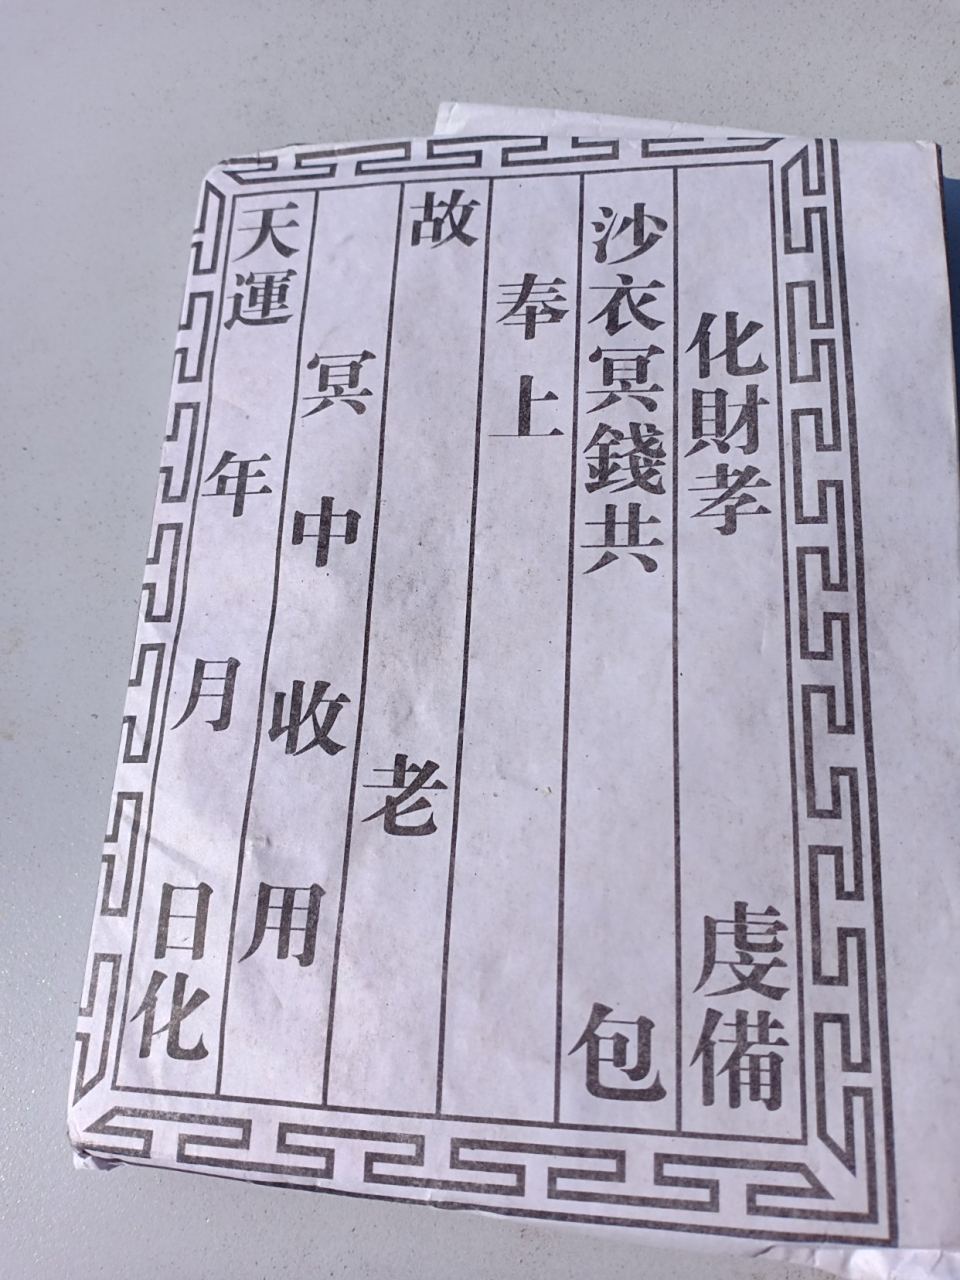 化財孝 虔備
沙衣冥錢共 包
奉上
故 老
冥中收用
天運 年 月 日化